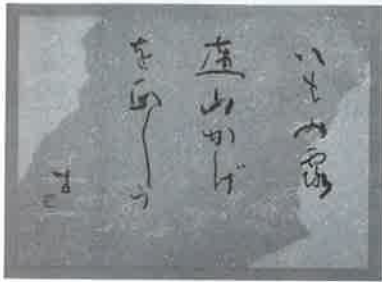 いもの露
連山かげ
を正しう